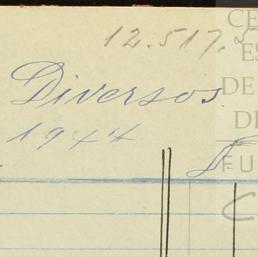 12.517.
Diversos
1944
CE
ES
DE
DE
FU
C